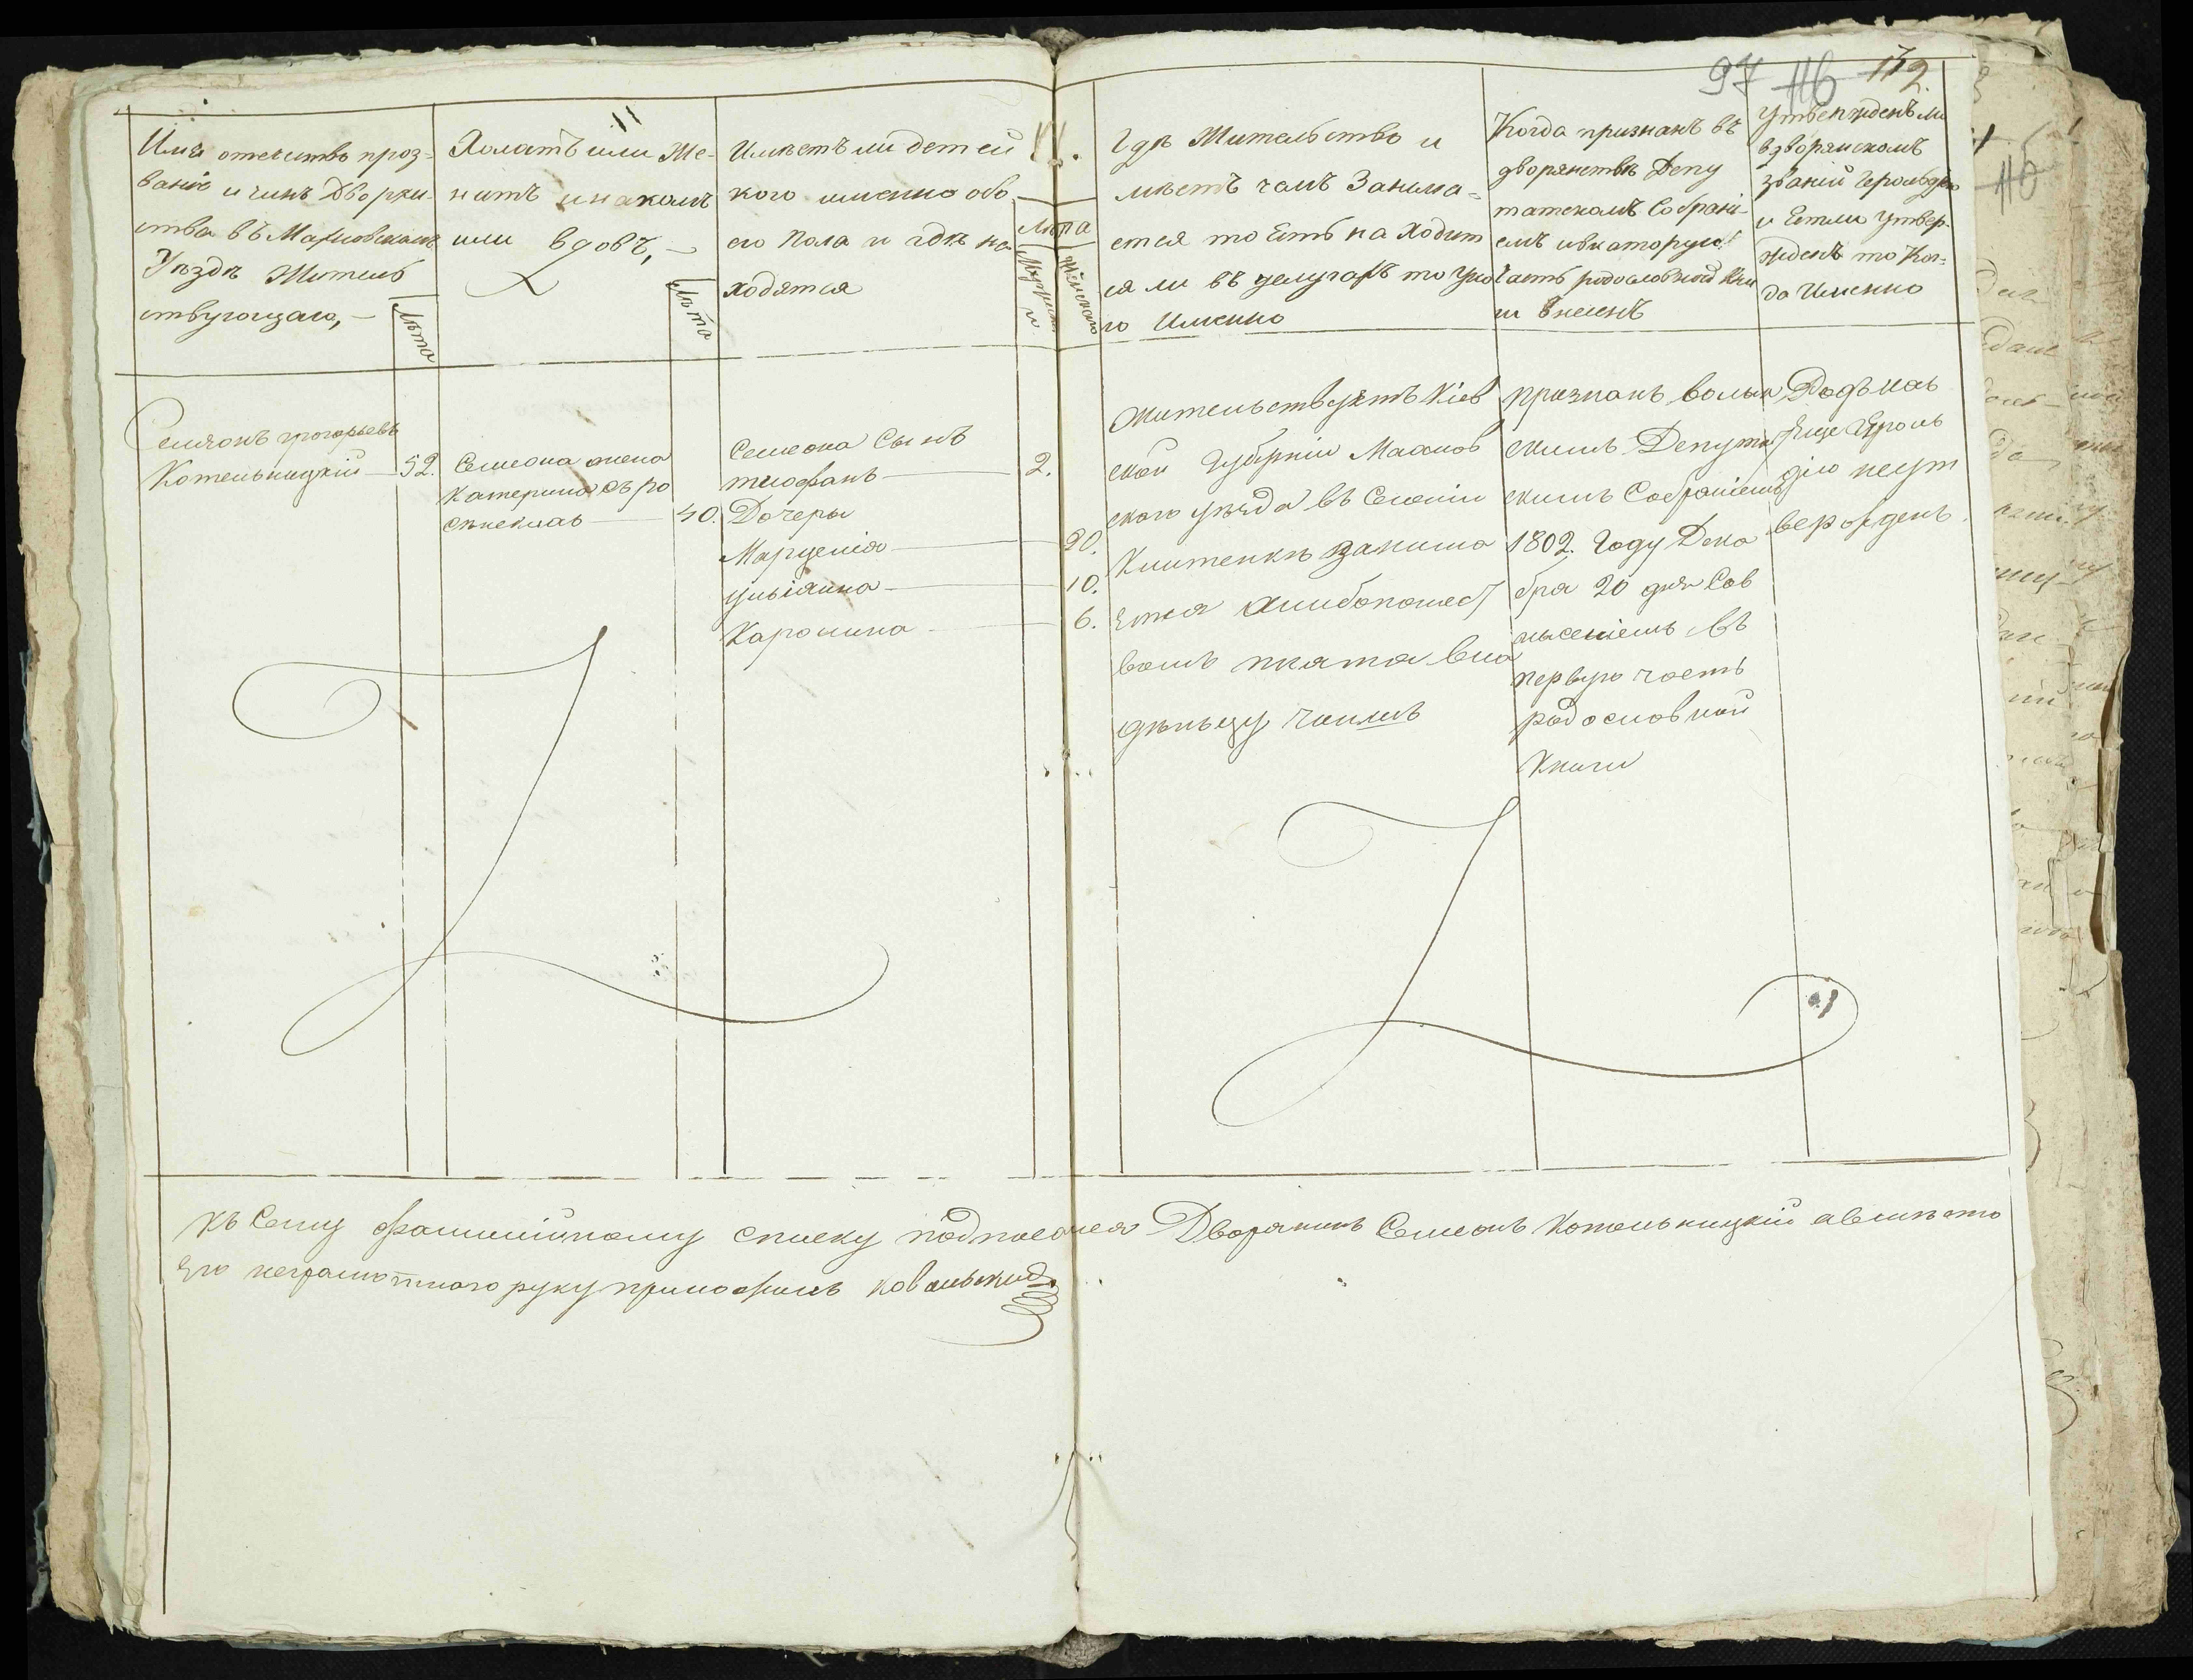 97 116 172.
11
Имя отечитво проз-
ваніе и чинъ Дворян-
ства въ Махновскомъ
Уѣздѣ Житель
ствующаго, —
Лѣта
Холатъ или Же-
натъ и на комъ
или вдовъ, —
Лѣта
Имѣетъ ли детей
кого именно обо
его пола и гдѣ на
ходятся
Лѣта
Мужеска
Женскаго
Гдѣ Жительство и
мѣетъ чемъ Занима-
ется то Есть на Ходит
ся ли въ услугахъ то У ко
го Именно
Когда признанъ въ
дворянствѣ Депу
татскомъ Собрані-
емъ и в которую
Часть родословной Кни
ги внесенъ
Утвержденъ ли
в дворянскомъ
званіи Герольдіею
и Если Утвер-
жденъ то Ког-
да Именно
Семіонъ григорьевъ
Котельницкій — 52.
Семиона жена
Катерина съ ро
— 40.
Семиона Сынъ
тиофанъ — 2.
Дочеры
Марцелія — 20.
Ульіанна — 10.
Каролина — 6.
жительствуетъ Кіев
ской Губерніи Махнов
ского уѣзда въ Селеніи
занима
ется хлибопашест
вомъ платя вла
дѣльцу чиншъ
признанъ волын
скимъ Депутат
скимъ Собраніемъ
1802. Году Дека
бра 20 дня Сов
несеніемъ въ
первую часть
родословной
Книги
Еще Героль
діею неут
вержденъ.
Къ Сему Фамилійному списку подписался Дворянинъ Семіонъ Котельницкій а вмѣсто
Его неграмотного руку приложилъ Ковальскій